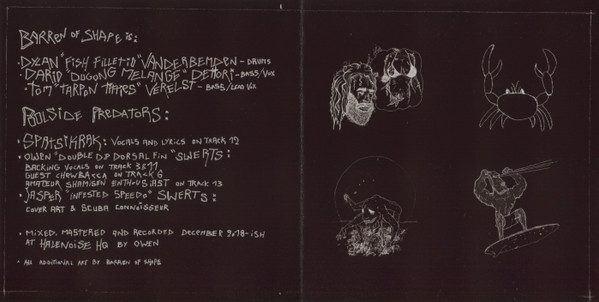 BARREN OF SHAPE IS:
• DYLAN "FISH FILLETIO" VANDERBEMDEN - DRUMS
• DARIO "DUGONG MELANGE" DETTORI - BASS/VOX
• TOM "TARPON TAPES" VERELST - BASS/LEAD VOX
POOLSIDE PREDATORS:
• SPATSIKRAK: VOCALS AND LYRICS ON TRACK 12
• OWEN "DOUBLE D.P DORSAL FIN" SWERTS:
BACKING VOCALS ON TRACK 3 & 11
GUEST CHEWBACCA ON TRACK 6
AMATEUR SHAMISEN ENTHOUSIAST ON TRACK 13
• JASPER "INFESTED SPEEDO" SWERTS:
COVER ART & SCUBA CONNOISSEUR
• MIXED, MASTERED AND RECORDED DECEMBER 2018-ISH
AT HALENOISE HQ BY OWEN
• ALL ADDITIONAL ART BY BARREN OF SHAPE